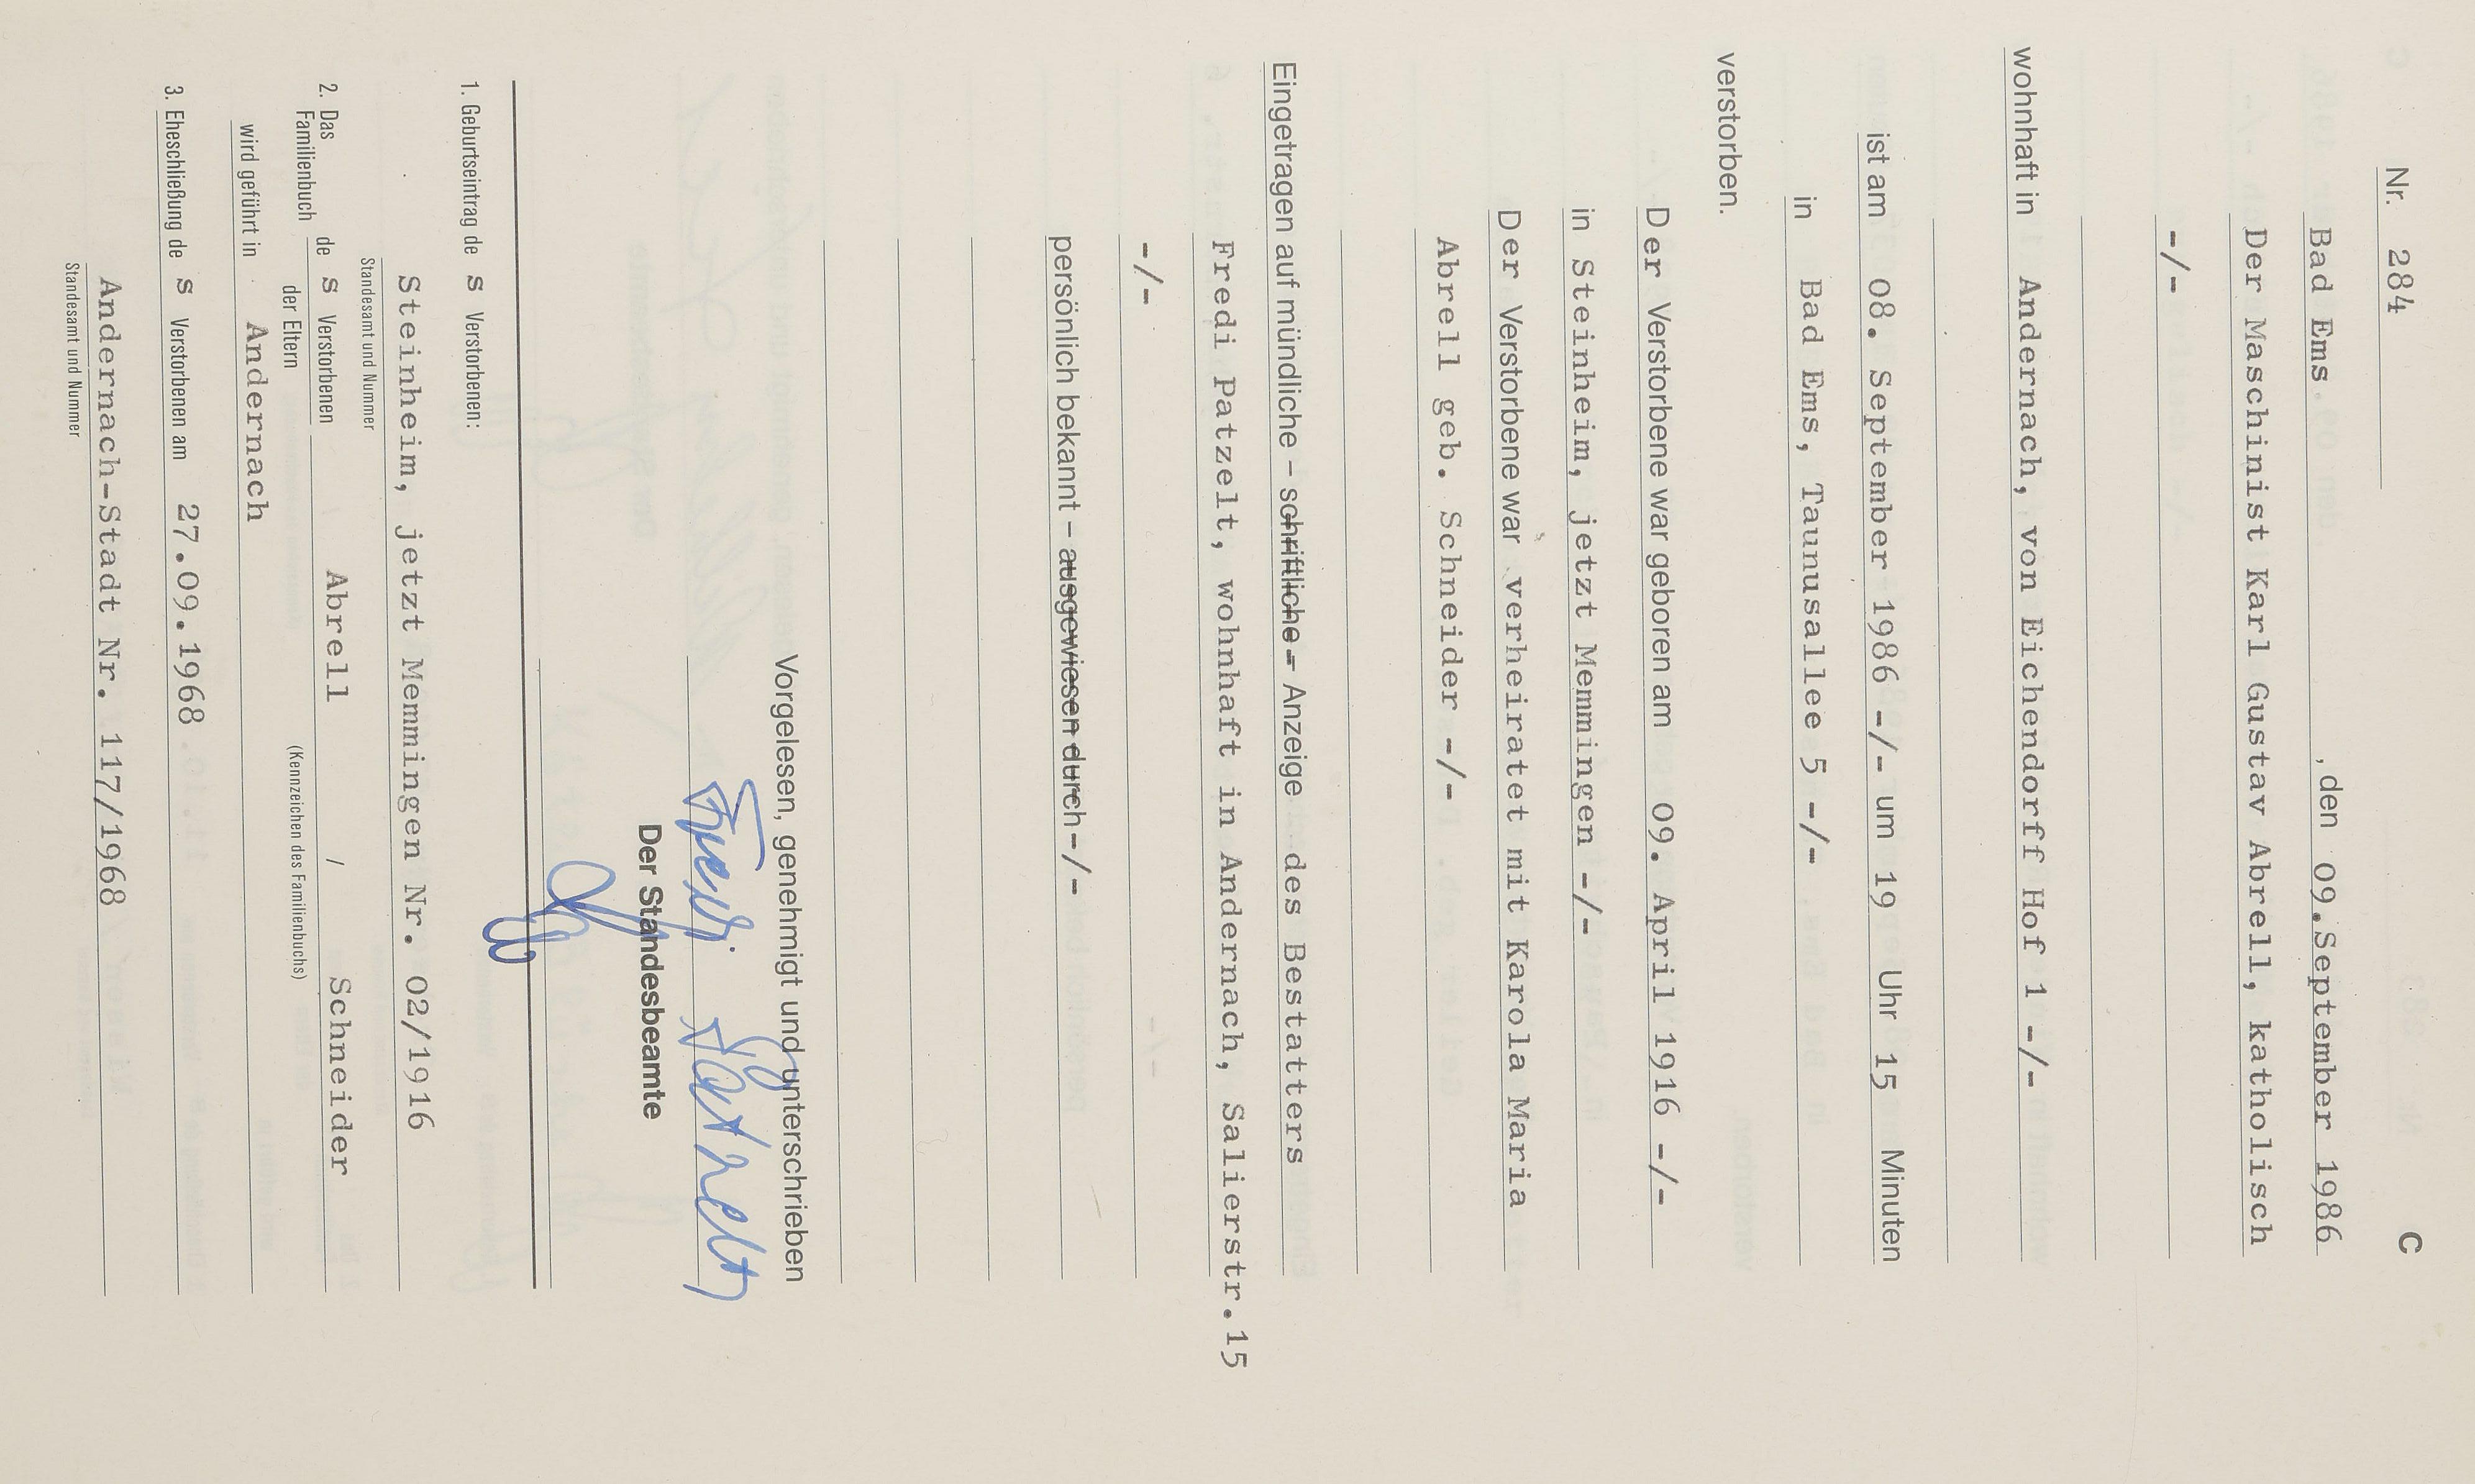 C
Nr. 284
Bad Ems, den 09.September 1986
Der Maschinist Karl Gustav Abrell, katholisch
-/-
wohnhaft in Andernach, von Eichendorff Hof 1 -/-
ist am 08. September 1986 -/- um 19 Uhr 15 Minuten
in Bad Ems, Taunusallee 5 -/-
verstorben.
Der Verstorbene war geboren am 09. April 1916 -/-
in Steinheim, jetzt Memmingen -/-
Der Verstorbene war verheiratet mit Karola Maria
Abrell geb. Schneider -/-
Eingetragen auf mündliche – schriftliche – Anzeige des Bestatters
Fredi Patzelt, wohnhaft in Andernach, Salierstr.15
-/-
persönlich bekannt – ausgewiesen durch -/-
Vorgelesen, genehmigt und unterschrieben
Fredi Patzelt
Der Standesbeamte
1. Geburtseintrag des Verstorbenen:
Steinheim, jetzt Memmingen Nr. 02/1916
Standesamt und Nummer
2. Das Familienbuch des Verstorbenen / der Eltern Abrell / Schneider
(Kennzeichen des Familienbuchs)
wird geführt in Andernach
3. Eheschließung des Verstorbenen am 27.09.1968
Andernach-Stadt Nr. 117/1968
Standesamt und Nummer